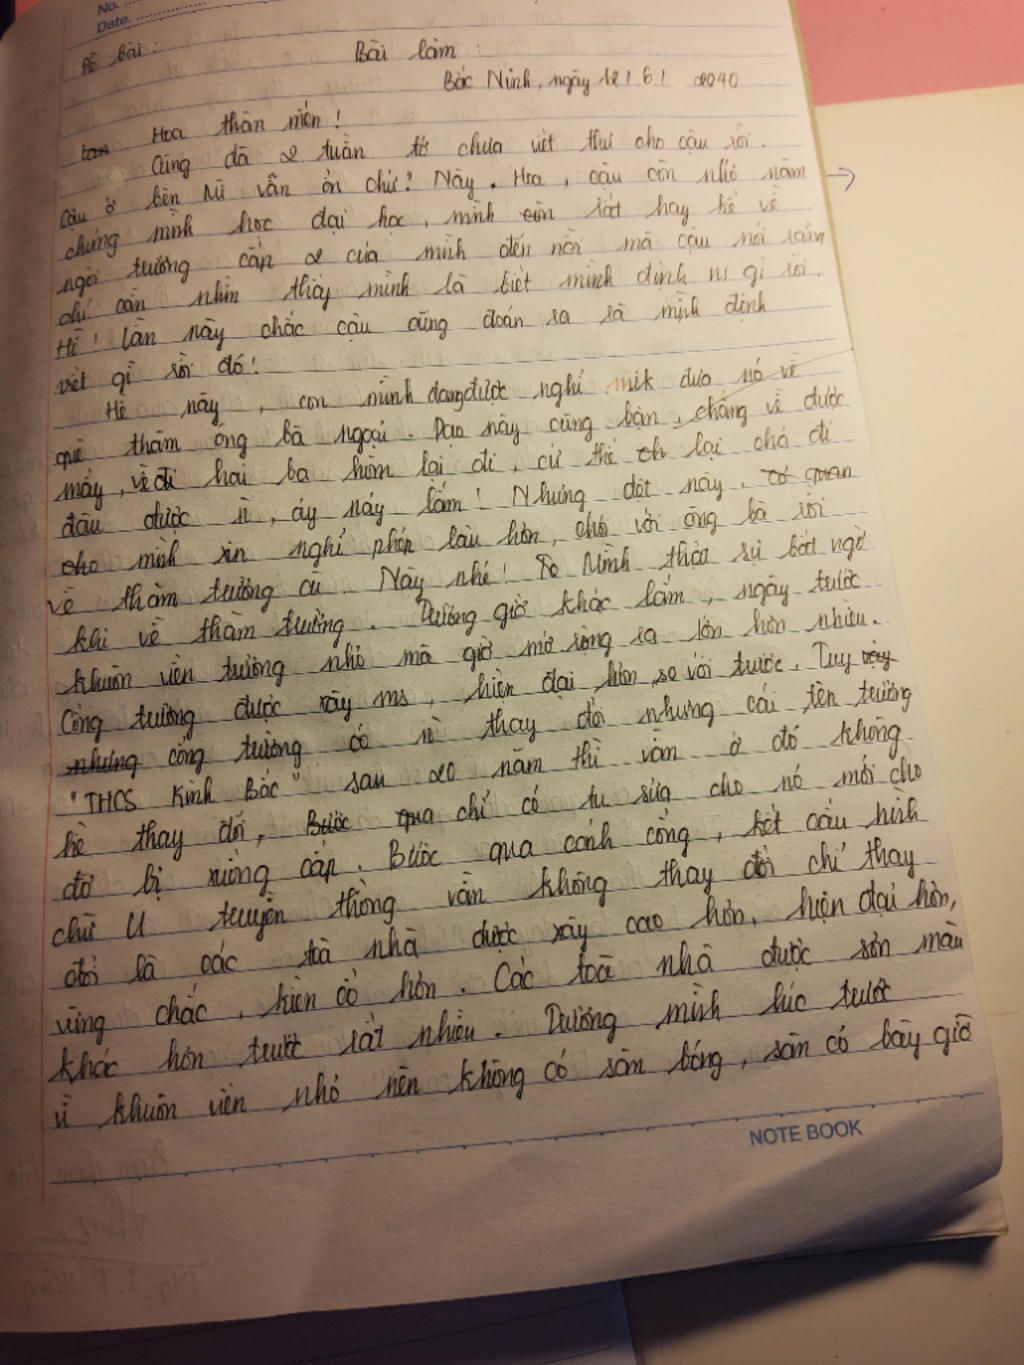 No. ...............
Date. ...............
Đề bài :
Bài làm :
Bắc Ninh, ngày 12 / 6 / 2040
Hoa thân mến !
Cũng đã 2 tuần tớ chưa viết thư cho cậu rồi.
Cậu ở bên Mĩ vẫn ổn chứ? Này, Hoa, cậu còn nhớ năm
chúng mình học đại học, mình rất hay kể về
ngôi trường cấp 2 của mình đến nỗi mà cậu nói rằng
chỉ cần nhìn thấy mình là biết mình định ns gì rồi.
Hì! lần này chắc cậu cũng đoán ra là mình định
viết gì rồi đó!
Hè này, con mình đang được nghỉ mik đưa nó về
quê thăm ông bà ngoại. Dạo này cũng bận, chẳng về được
mấy, về đi hai ba hôm lại đi, cứ thế lại chả đi
đâu được ì, áy náy lắm! Nhưng đợt này,
mình xin nghỉ phép lâu hơn, chơi với ông bà rồi
về thăm trường cũ. Này nhé! Mình thật sự bất ngờ
khi về thăm trường. Trường giờ khác lắm, ngày trước
khuôn viên trường nhỏ mà giờ mở rộng ra lớn hơn nhiều.
Cổng trường được xây ms, hiện đại hơn so với trước. Tuy
cổng trường có ì thay đổi nhưng cái tên trường
"THCS Kinh Bắc" sau 20 năm thì vẫn ở đó không
hề thay đổi, chỉ có tu sửa cho nó mới cho
đỡ bị xuống cấp. Bước qua cánh cổng, kết cấu hình
chữ U truyền thống vẫn không thay đổi chỉ thay
đổi là các toà nhà được xây cao hơn, hiện đại hơn,
vững chắc, kiên cố hơn. Các toà nhà được sơn màu
khác hơn trước rất nhiều. Trường mình lúc trước
vì khuôn viên nhỏ nên không có sân bóng, sân cỏ bây giờ
NOTE BOOK